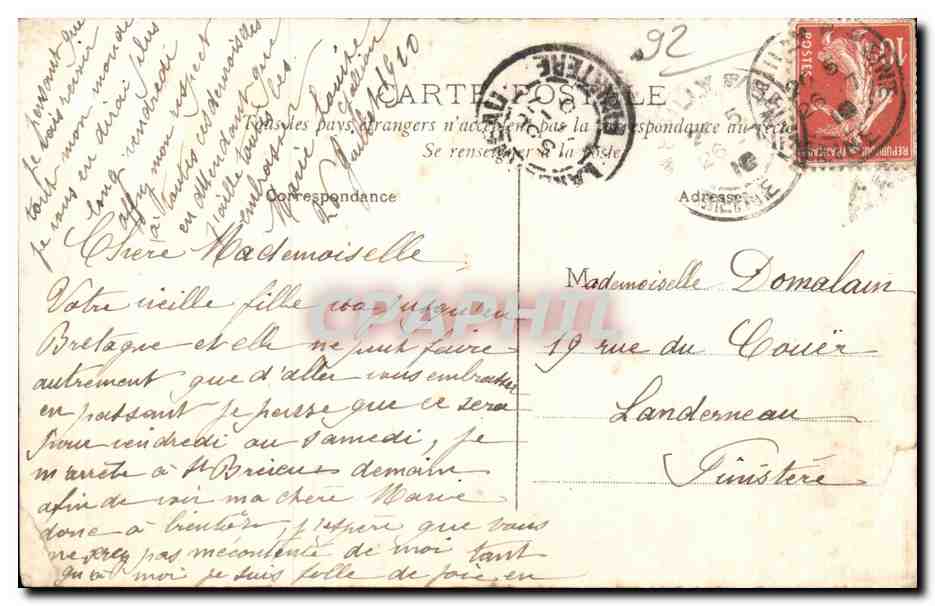 92
CARTE POSTALE
Tous les pays étrangers n'acceptent pas la correspondance au recto
Se renseigner à la Poste
Correspondance
Adresse
10
POSTES
REPUBLIQUE FRANÇAISE
Chère Mademoiselle
Votre vieille fille va jusqu'en
Bretagne et elle ne peut faire
autrement que d'aller vous embrasser
en passant je pense que ce sera
pour vendredi ou samedi, je
m'arrête à St Brieuc demain
afin de voir ma chère Marie
donc à bientôt, j'espère que vous
ne serez pas mécontente de moi tant
qu'à moi je suis folle de joie en
pensant que
je vais revoir
tout mon monde
je vous en dirai plus
long vendredi
mon respect
à toutes ces demoiselles
en attendant que
j'aille toutes les
embrasser
Marie Louise
Juillet 1910
Mademoiselle Domalain
19 rue du Couër
Landerneau
Finistère
CPAPHIL